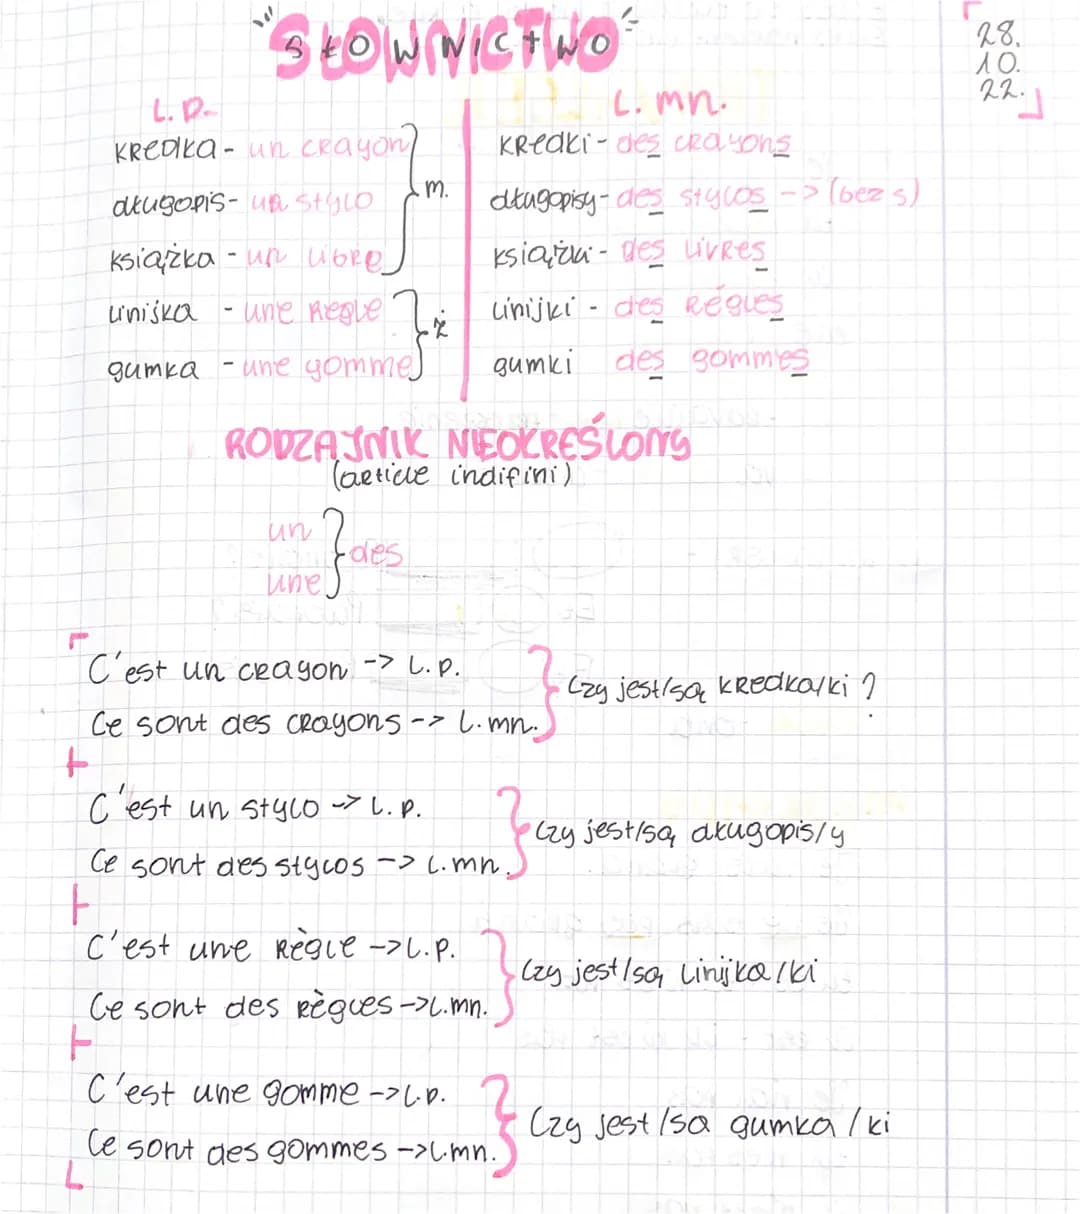 SŁOWNICTWO
28.
10.
22.
L.p.
kredka - un crayon
długopis - un stylo
książka - un libre
m.
linijka - une règle
gumka - une gomme
ż
L. mn.
kredki - des crayons
długopisy - des stylos -> (bez s)
książki - des livres
linijki - des régles
gumki des gommes
RODZAJNIK NIEOKREŚLONY
(article indifini)
un
une
des
C'est un crayon -> L.p.
Ce sont des crayons -> L.mn.
Czy jest/są kredka/ki ?
C'est un stylo -> L.p.
Ce sont des stylos -> L.mn.
Czy jest/są długopis/y
C'est une règle -> L.p.
Ce sont des règles -> L.mn.
Czy jest/są linijka/ki
C'est une gomme -> L.p.
Ce sont des gommes -> L.mn.
Czy jest/sa gumka/ki